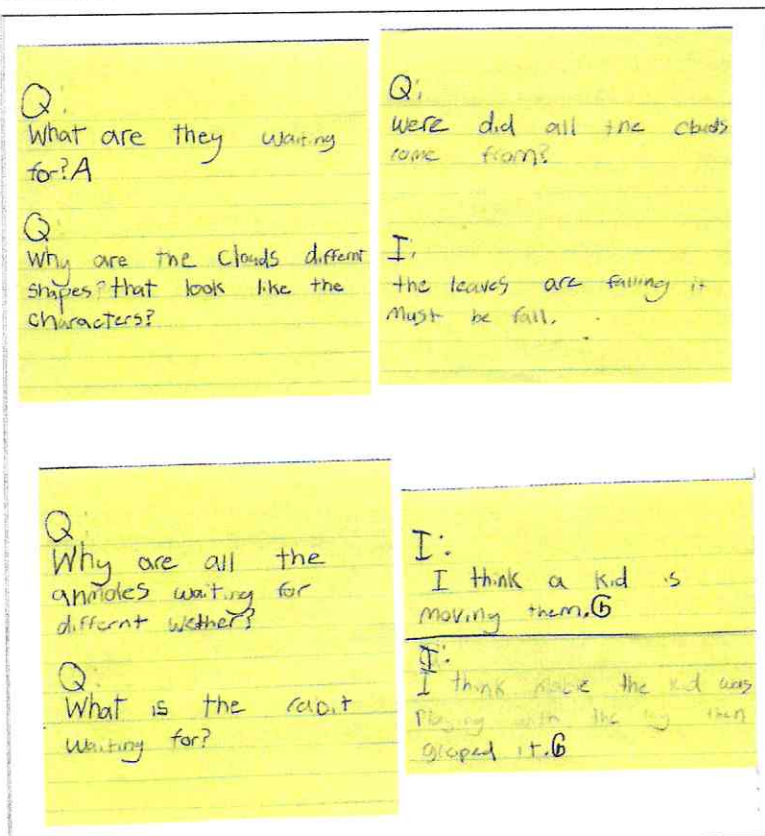 Q:
What are they waiting
for? A
Q:
Why are the Clouds differnt
shapes? that look like the
characters?
Q:
Were did all the clouds
come from?
I:
the leaves are falling it
must be fall.
Q:
Why are all the
anmoles waiting for
differnt wether?
Q:
What is the rabit
waiting for?
I:
I think a kid is
moving them. G
I:
I think the kid was
Playing with the then
it. G